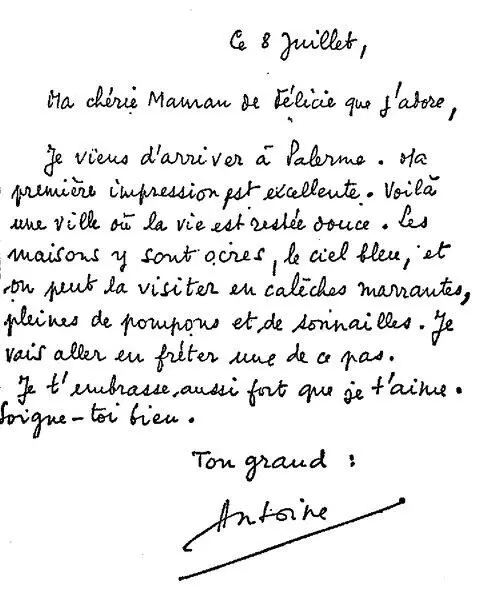 Ce 8 Juillet,
Ma chérie Maman de Félicie que j'adore,
Je viens d'arriver à Palerme. Ma
première impression est excellente. Voilà
une ville où la vie est restée douce. Les
maisons y sont ocres, le ciel bleu, et
on peut la visiter en calèches marrantes,
pleines de pompons et de sonnailles. Je
vais aller en fréter une de ce pas.
Je t'embrasse aussi fort que je t'aime.
Soigne-toi bien.
Ton grand :
Antoine